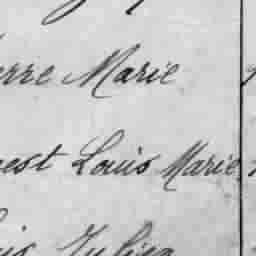 erre Marie
nest Louis Marie
uis Julien